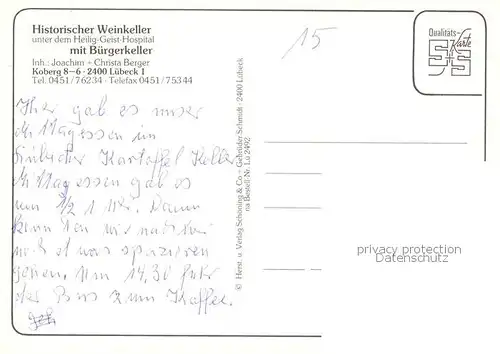 Historischer Weinkeller
unter dem Heilig-Geist-Hospital
mit Bürgerkeller
Inh.: Joachim + Christa Berger
Koberg 8–6 · 2400 Lübeck 1
Tel. 0451/76234 · Telefax 0451/75344
15
Qualitäts-
Karte
Hier gab es unser
Mittagessen im
Kartoffel Keller
Mittagessen gab es
um 1/2 1 Uhr. Dann
noch etwas spazieren
gehen. Um 14,30 fuhr
der Bus zum Kaffee.
© Herst. u. Verlag Schöning & Co + Gebrüder Schmidt · 2400 Lübeck
na Bestell-Nr. Lü 2492
privacy protection
Datenschutz